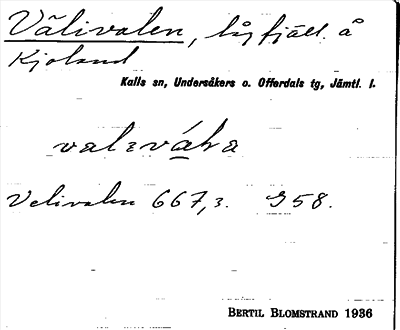 Välivalen, lågfjäll. å
Kjoland
Kalls sn, Undersåkers o. Offerdals tg, Jämtl. l.
valɛváha
Velivalen 667,3. G58.
BERTIL BLOMSTRAND 1936